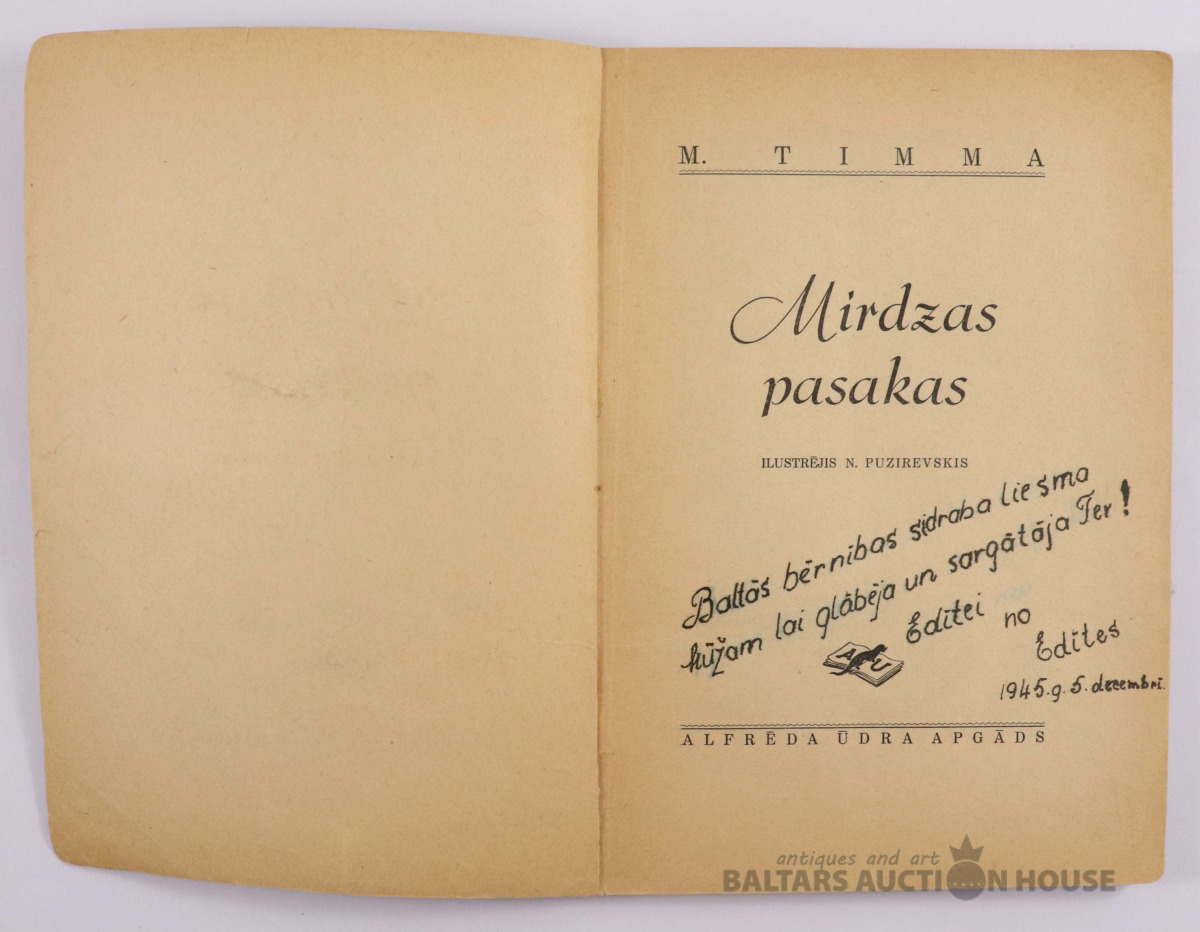 M. TIMMA
Mirdzas
pasakas
ILUSTRĒJIS N. PUZIREVSKIS
Baltās bērnības sidraba liesma
lai glābēja un sargātāja Tev!
Edītei
no
Edītes
1945. g. 5. decembrī.
A U
ALFRĒDA ŪDRA APGĀDS
antiques and art
BALTARS AUCTION HOUSE